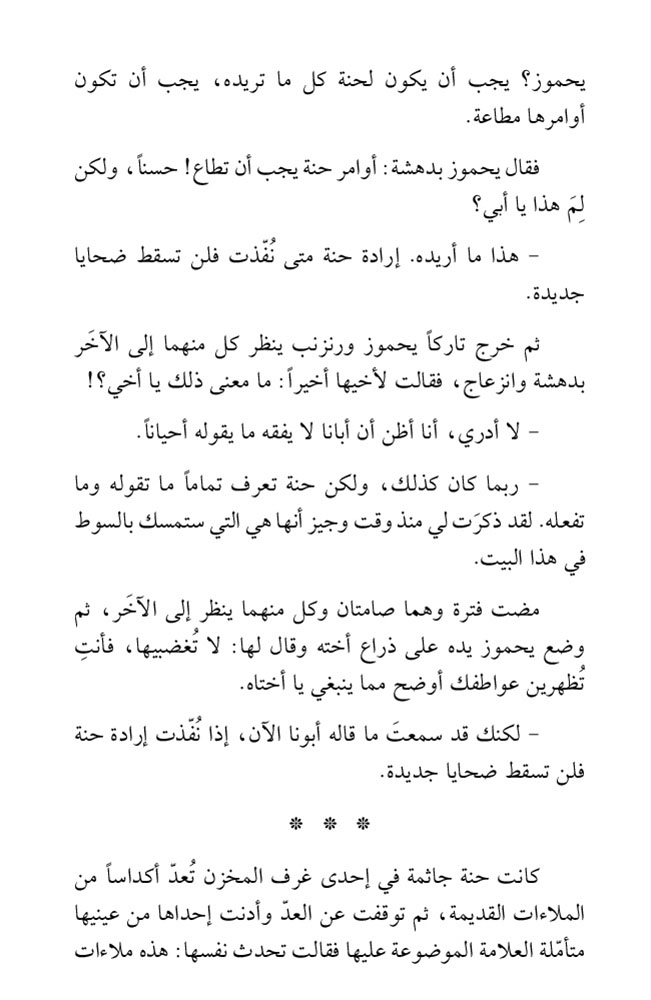 يحموز؟ يجب أن يكون لحنة كل ما تريده، يجب أن تكون
أوامرها مطاعة.
فقال يحموز بدهشة: أوامر حنة يجب أن تطاع! حسناً، ولكن
لِمَ هذا يا أبي؟
- هذا ما أريده. إرادة حنة متى نُفّذت فلن تسقط ضحايا
جديدة.
ثم خرج تاركاً يحموز ورنزنب ينظر كل منهما إلى الآخَر
بدهشة وانزعاج، فقالت لأخيها أخيراً: ما معنى ذلك يا أخي؟!
- لا أدري، أنا أظن أن أبانا لا يفقه ما يقوله أحياناً.
- ربما كان كذلك، ولكن حنة تعرف تماماً ما تقوله وما
تفعله. لقد ذكرَت لي منذ وقت وجيز أنها هي التي ستمسك بالسوط
في هذا البيت.
مضت فترة وهما صامتان وكل منهما ينظر إلى الآخَر، ثم
وضع يحموز يده على ذراع أخته وقال لها: لا تُغضبيها، فأنتِ
تُظهرين عواطفك أوضح مما ينبغي يا أختاه.
- لكنك قد سمعتَ ما قاله أبونا الآن، إذا نُفّذت إرادة حنة
فلن تسقط ضحايا جديدة.
* * *
كانت حنة جاثمة في إحدى غرف المخزن تُعدّ أكداساً من
الملاءات القديمة، ثم توقفت عن العدّ وأدنت إحداها من عينيها
متأمّلة العلامة الموضوعة عليها فقالت تحدث نفسها: هذه ملاءات